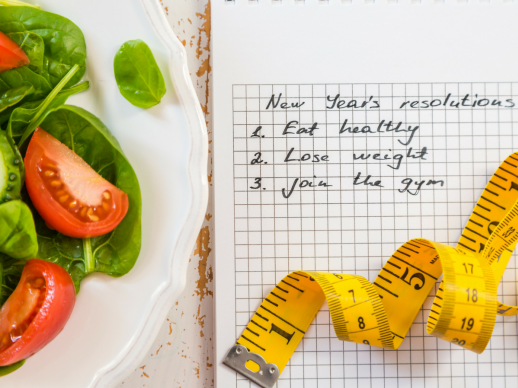 New Year's resolutions
1. Eat healthy
2. Lose weight
3. join the gym
1
7
8
5
17
18
19